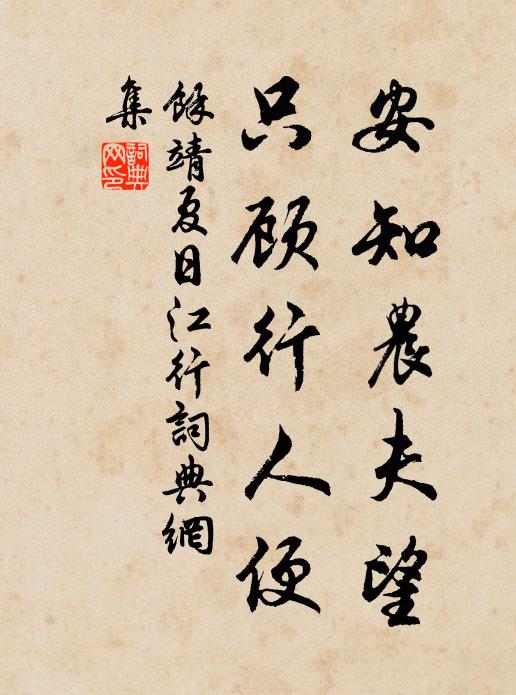 安知農夫望
只顾行人便
餘靖夏日江行詞典網
集
詞典
网印